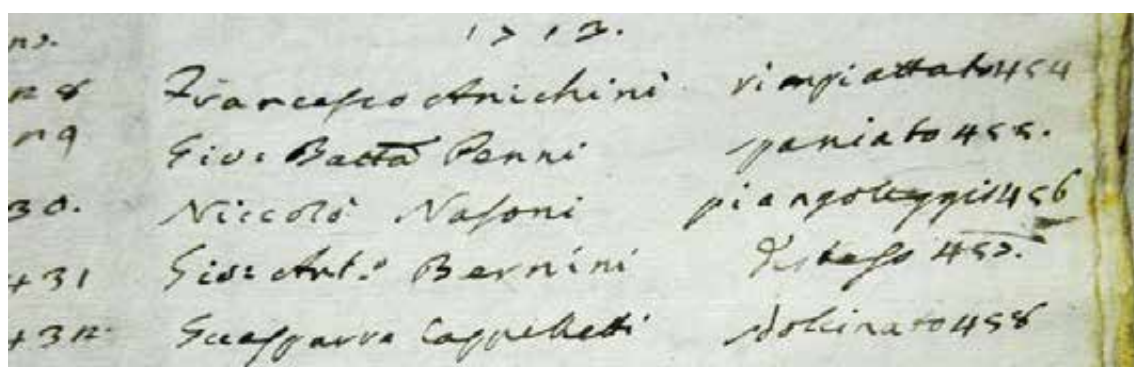 1713.
28 Francesco Anichini rimpiattato 454
29 Gio: Batta Penni paniato 455.
30. Niccolò Nasoni piangoleggio 456
+31 Gio: Ant.o Bernini Disteso 457.
+32 Guasparra Cappelletti 458